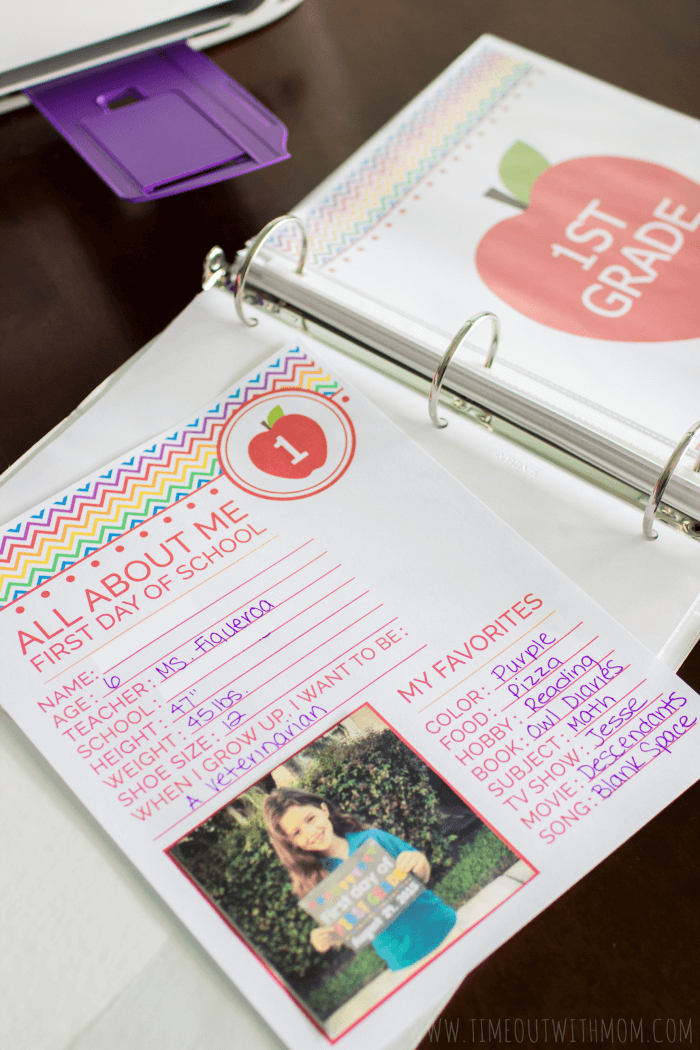 1ST
GRADE
1
ALL ABOUT ME
FIRST DAY OF SCHOOL
NAME:
AGE: 6
TEACHER: Ms. Figueroa
SCHOOL:
HEIGHT: 47"
WEIGHT: 45 lbs.
SHOE SIZE: 12
WHEN I GROW UP, I WANT TO BE:
A veterinarian
MY FAVORITES
COLOR: Purple
FOOD: Pizza
HOBBY: Reading
BOOK: Owl Diaries
SUBJECT: Math
TV SHOW: Jesse
MOVIE: Descendants
SONG: Blank Space
first day of
FIRST GRADE
WWW.TIMEOUTWITHMOM.COM